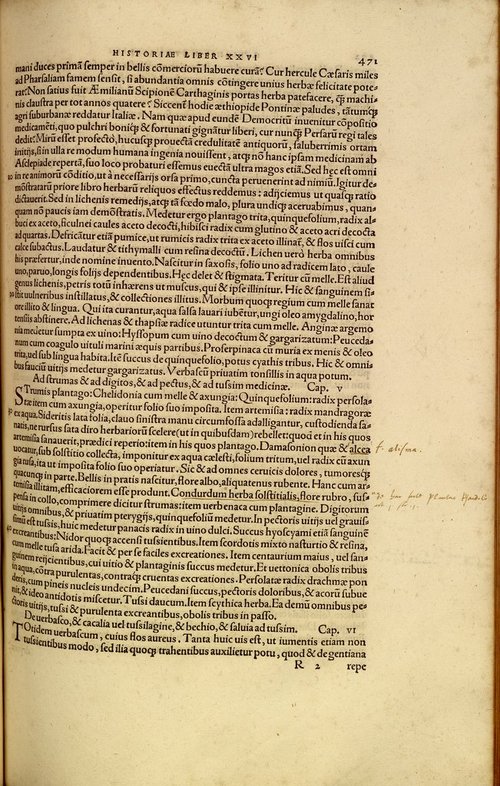 HISTORIAE LIBER XXVI
471
mani duces primā semper in bellis cōmerciorū habuere curā? Cur hercule Cæsaris miles
ad Pharsaliam famem sensit, si abundantia omnis cōtingere unius herbæ felicitate pote-
rat? Non satius fuit Æmilianū Scipionē Carthaginis portas herba patefacere, q̃ machi-
nis claustra per tot annos quatere? Siccent hodie æthiopide Pontinæ paludes, tātumq;
agri suburbanæ reddatur Italiæ. Nam quæ apud eundē Democritū inuenitur cōpositio
medicamēti, quo pulchri boniq; & fortunati gignātur liberi, cur nunq̃ Persarū regi tales
dedit? Mirū esset profectò, hucusq; prouectā credulitatē antiquorū, saluberrimis ortam
initijs, si in ulla re modum humana ingenia nouissent, atq; nō hanc ipsam medicinam ab
Asclepiade repertā, suo loco probaturi essemus euectā ultra magos etiā. Sed hęc est omni
in re animorū cōditio, ut à necessarijs orsa primo, cuncta peruenerint ad nimiū. Igitur de-
mōstratarū priore libro herbarū reliquos effectus reddemus: adijciemus ut quasq; ratio
dictauerit. Sed in lichenis remedijs, atq; tā fœdo malo, plura undiq; aceruabimus, quan-
quam nō paucis iam demōstratis. Medetur ergo plantago trita, quinquefolium, radix al-
buci ex aceto, ficulnei caules aceto decocti, hibisci radix cum glutino & aceto acri decocta
ad quartas. Defricātur etiā pumice, ut rumicis radix trita ex aceto illinat̃, & flos uisci cum
calce subactus. Laudatur & tithymalli cum resina decoctū. Lichen uerò herba omnibus
his præfertur, inde nomine inuento. Nascitur in saxosis, folio uno ad radicem lato, caule
uno, paruo, longis folijs dependentibus. Hęc delet & stigmata. Teritur cū melle. Est aliud
genus lichenis, petris totū inhærens ut muscus, qui & ipse illinitur. Hic & sanguinem si-
stit uulneribus instillatus, & collectiones illitus. Morbum quoq; regium cum melle sanat
ore illito & lingua. Qui ita curantur, aqua salsa lauari iubētur, ungi oleo amygdalino, hor
tensijs abstinere. Ad lichenas & thapsiæ radice utuntur trita cum melle. Anginæ argemo
nia medetur sumpta ex uino: Hyssopum cum uino decoctum & gargarizatum: Peuceda-
num cum coagulo uituli marini æquis partibus. Proserpinaca cū muria ex menis & oleo
trita, uel sub lingua habita. Itē succus de quinquefolio, potus cyathis tribus. Hic & omni-
bus fauciū uitijs medetur gargarizatus. Verbascū priuatim tonsillis in aqua potum.
Ad strumas & ad digitos, & ad pectus, & ad tussim medicinæ. Cap. V
STrumis plantago: Chelidonia cum melle & axungia: Quinquefolium: radix persola-
tæ item cum axungia, operitur folio suo imposita. Item artemisia: radix mandragoræ
ex aqua. Sideritis lata folia, clauo sinistra manu circumfossa adalligantur, custodienda sa-
natis, ne rursus sata diro herbariorū scelere (ut in quibusdam) rebellet: quod et in his quos
artemisia sanauerit, prædici reperio: item in his quos plantago. Damasonion quæ & alcea
uocatur, sub solstitio collecta, imponitur ex aqua cælesti, folium tritum, uel radix cū axun
gia tusa, ita ut imposita folio suo operiatur. Sic & ad omnes ceruicis dolores, tumoresq;
quacunq; in parte. Bellis in pratis nascitur, flore albo, aliquatenus rubente. Hanc cum ar-
temisia illitam, efficaciorem esse produnt. Condurdum herba solstitialis, flore rubro, sus-
pensa in collo, comprimere dicitur strumas: item uerbenaca cum plantagine. Digitorum
uitijs omnibus, & priuatim pterygijs, quinquefoliū medetur. In pectoris uitijs uel grauissi-
mū est tussis, huic medetur panacis radix in uino dulci. Succus hyoscyami etiā sanguinē
excreantibus: Nidor quoq; accensi tussientibus. Item scordotis mixto nasturtio & resina,
cum melle tusa arida. Facit & per se faciles excreationes. Item centaurium maius, uel san-
guinem reijcientibus, cui uitio & plantaginis succus medetur. Et uettonica obolis tribus
in aqua, cōtra purulentas, contraq; cruentas excreationes. Persolatæ radix drachmæ pon
deris, cum pineis nucleis undecim. Peucedani succus, pectoris doloribus, & acorū subue
nit, & ideo antidotis miscetur. Tussi daucum. Item scythica herba. Ea demū omnibus pe-
ctoris uitijs, tussi & purulenta excreantibus, obolis tribus in passo.
De uerbasco, & cacalia uel tussilagine, & bechio, & saluia ad tussim. Cap. VI
TOtidem uerbascum, cuius flos aureus. Tanta huic uis est, ut iumentis etiam non
tussientibus modo, sed ilia quoq; trahentibus auxilietur potu, quod & de gentiana
R 2 repe
f. alisma.